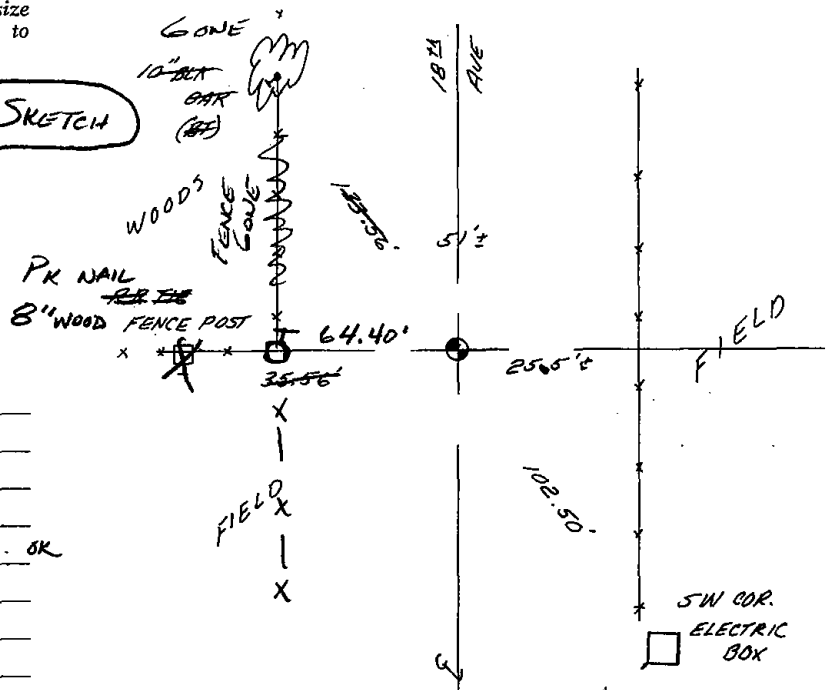 size
to
SKETCH
GONE
10" BLK
OAR
(BT)
18TH AVE
WOODS
FENCE GONE
133.56'
51'±
PK NAIL
8" WOOD FENCE POST
64.40'
35.56'
25.5'±
FIELD
FIELD
102.50'
. OK
SW COR.
ELECTRIC
BOX